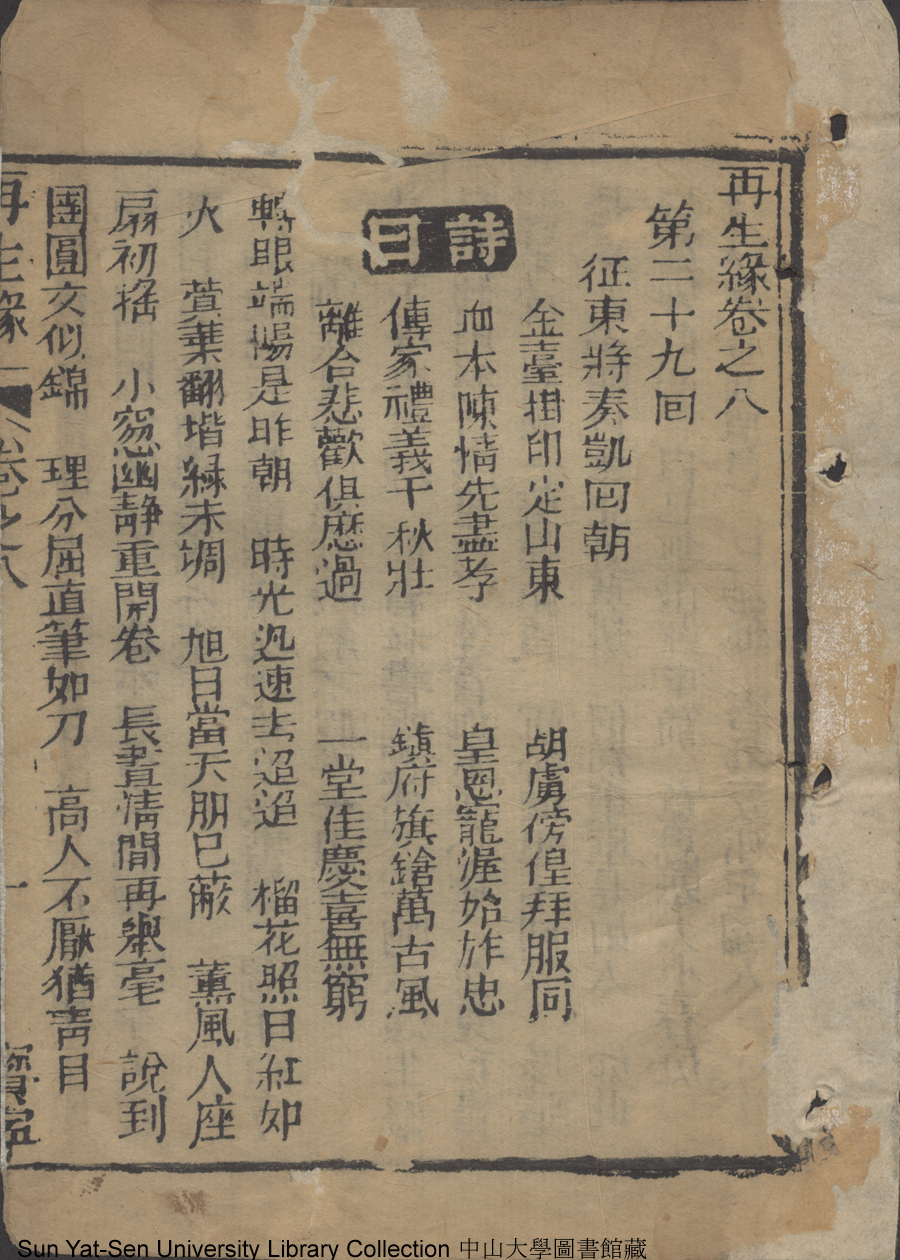 再生緣卷之八
第二十九回
征東將奏凱回朝
詩曰
金臺掛印定山東　胡虜傍徨拜服同
血本陳情先盡孝　皇恩寵渥始旌忠
傳家禮義千秋壯　鎮府旗鎗萬古風
離合悲歡俱歷過　一堂佳慶喜無窮
轉眼端陽是昨朝　時光迅速去迢迢　榴花照日紅如
火　萱葉翻堦綠未凋　旭日當天朋已蔽　薰風人座
扇初搖　小窓幽靜重開卷　長晝清閒再舉毫　說到
團圓文似錦　理分屈直筆如刀　高人不厭猶靑目
再生緣　卷之八　一　寶寧
Sun Yat-Sen University Library Collection 中山大學圖書館藏